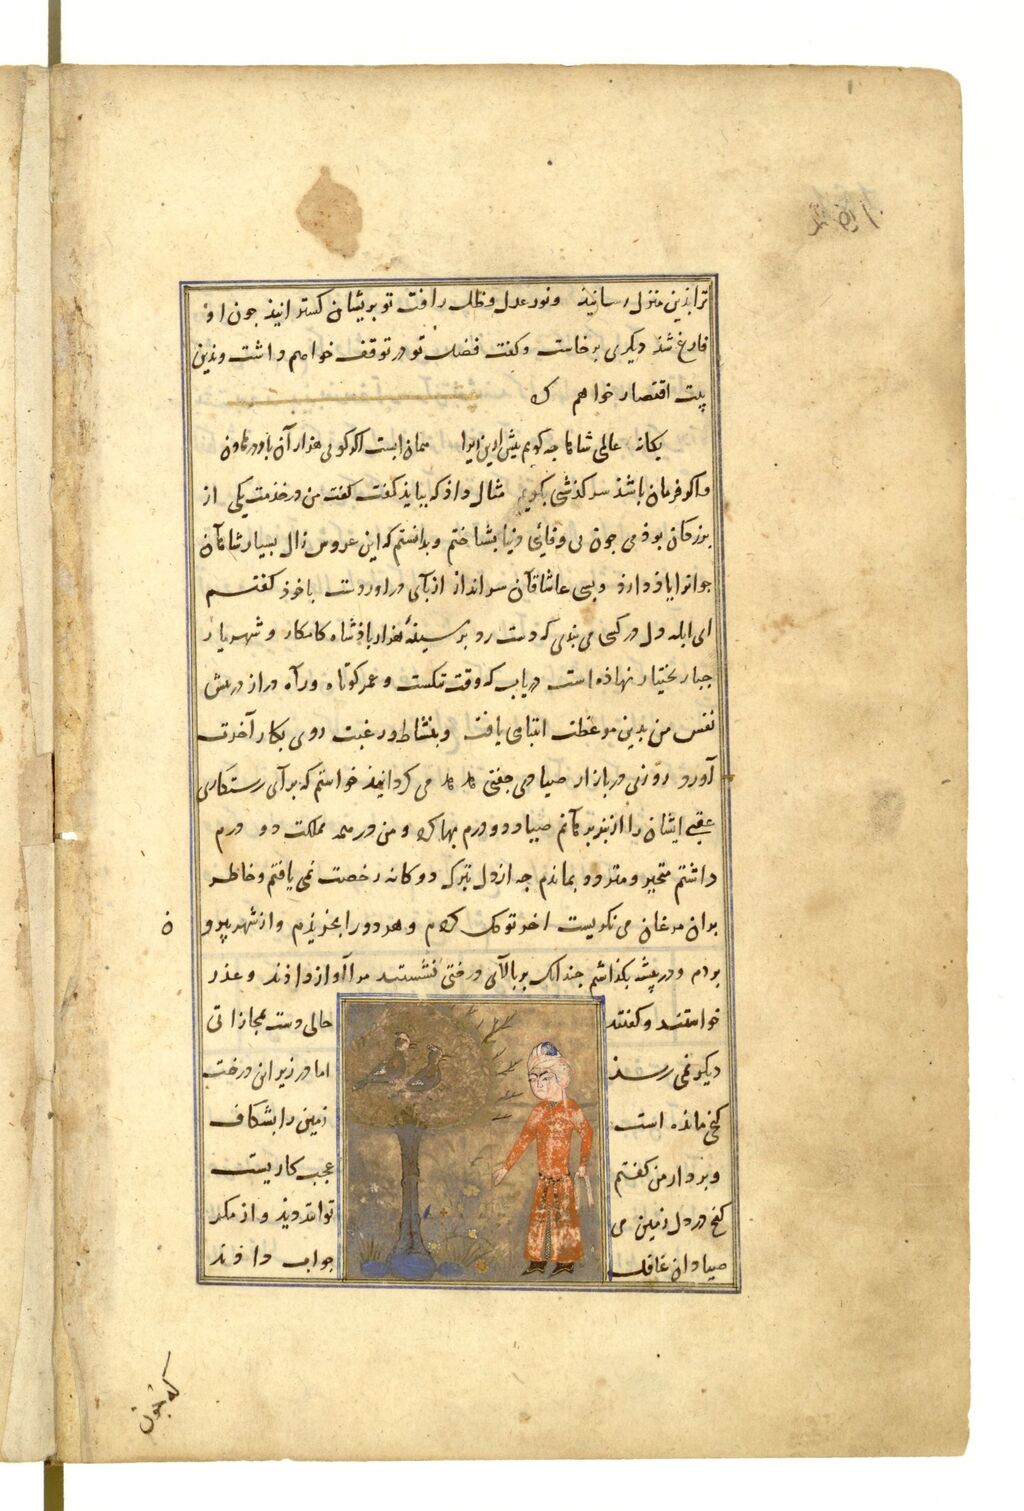 ترا بذین منزل رسانیذ ونور عدل وظل رافت تو بریشان کسترانیذ جون او
فارغ شذ دیکری برخاست وکفت فضل تو در توقف خواهم داشت وبذین
بیت اقتصار خواهم ک
یکانه عالمی شاها جه کویم بیش ازین ایرا همان است اکر کویی هزار آن باور
واکر فرمان باشذ سرکذشتی بکویم مثال داذ که ببایذ کفت کفت من در خذمت یکی از
بزرکان بوذمی جون بی وفائی دنیا بشناختم وبدانستم که این عروس زال بسیار شاهان
جوانرا یاذ دارذ وبسی عاشقان سرانداز از بای دراوردست باخوذ کفتم
ای ابله دل در کسی می بندی که دست رد بر سینهٔ هزار باذشاه کامکار و شهریار
جبار بختیار نهاذه است دریاب که وقت تنکست و عمر کوتاه وراه دراز در بیش
نفس من بدین موعظت انتباهی یافت وبنشاط ورغبت روی بکار آخرت
آورد روزی در بازار صیادی جفتی می کردانیذ خواستم که برای رستکاری
عقبی ایشان را از بند برهانم صیاد دو درم بها کرد ومن در همه مملکت دو درم
داشتم متحیر ومتردد بماندم جه از دل بترک دوکانه رخصت نمی یافتم وخاطر
بدان مرغان می نکریست اخر توکل کردم وهر دو را بخریذم واز شهر بیرون
بردم ودر بیشه بکذاشتم جندانک بر بالای درختی نشستند مرا آواز داذند وعذر
خواستند وکفتند حالی دست مجازاتی
دیکر نمی رسذ اما در زیر این درخت
کنجی مانده است زمین را بشکاف
وبردار من کفتم عجب کاریست
کنج در دل زمین می توانید دید واز مکر
صیادان غافل جواب داذند
که جون